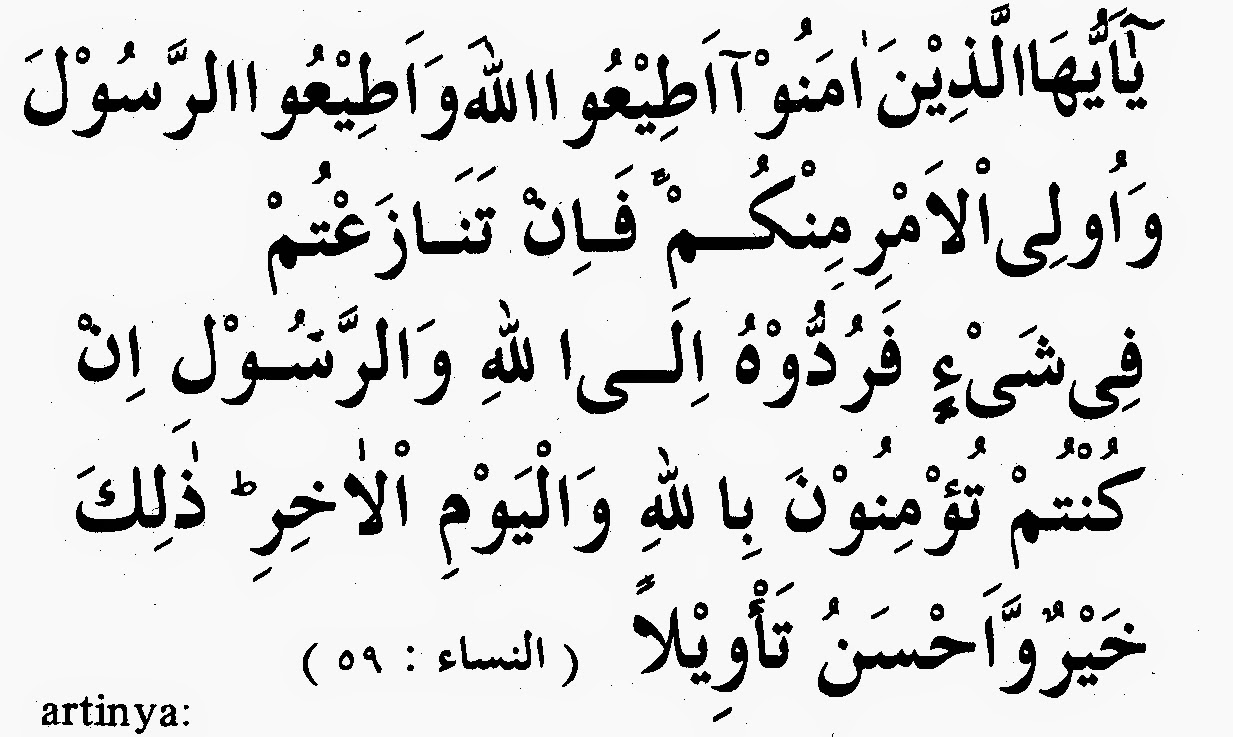 يٰٓاَيُّهَا الَّذِيْنَ اٰمَنُوْآ اَطِيْعُوا اللهَ وَاَطِيْعُوا الرَّسُوْلَ
وَاُولِى اْلاَمْرِ مِنْكُمْ ۚ فَاِنْ تَنَازَعْتُمْ
فِى شَىْءٍ فَرُدُّوْهُ اِلَى اللهِ وَالرَّسُوْلِ اِنْ
كُنْتُمْ تُؤْمِنُوْنَ بِاللهِ وَالْيَوْمِ اْلاٰخِرِ ۗ ذٰلِكَ
خَيْرٌ وَّاَحْسَنُ تَأْوِيْلاً ( النساء : ٥٩ )
artinya: